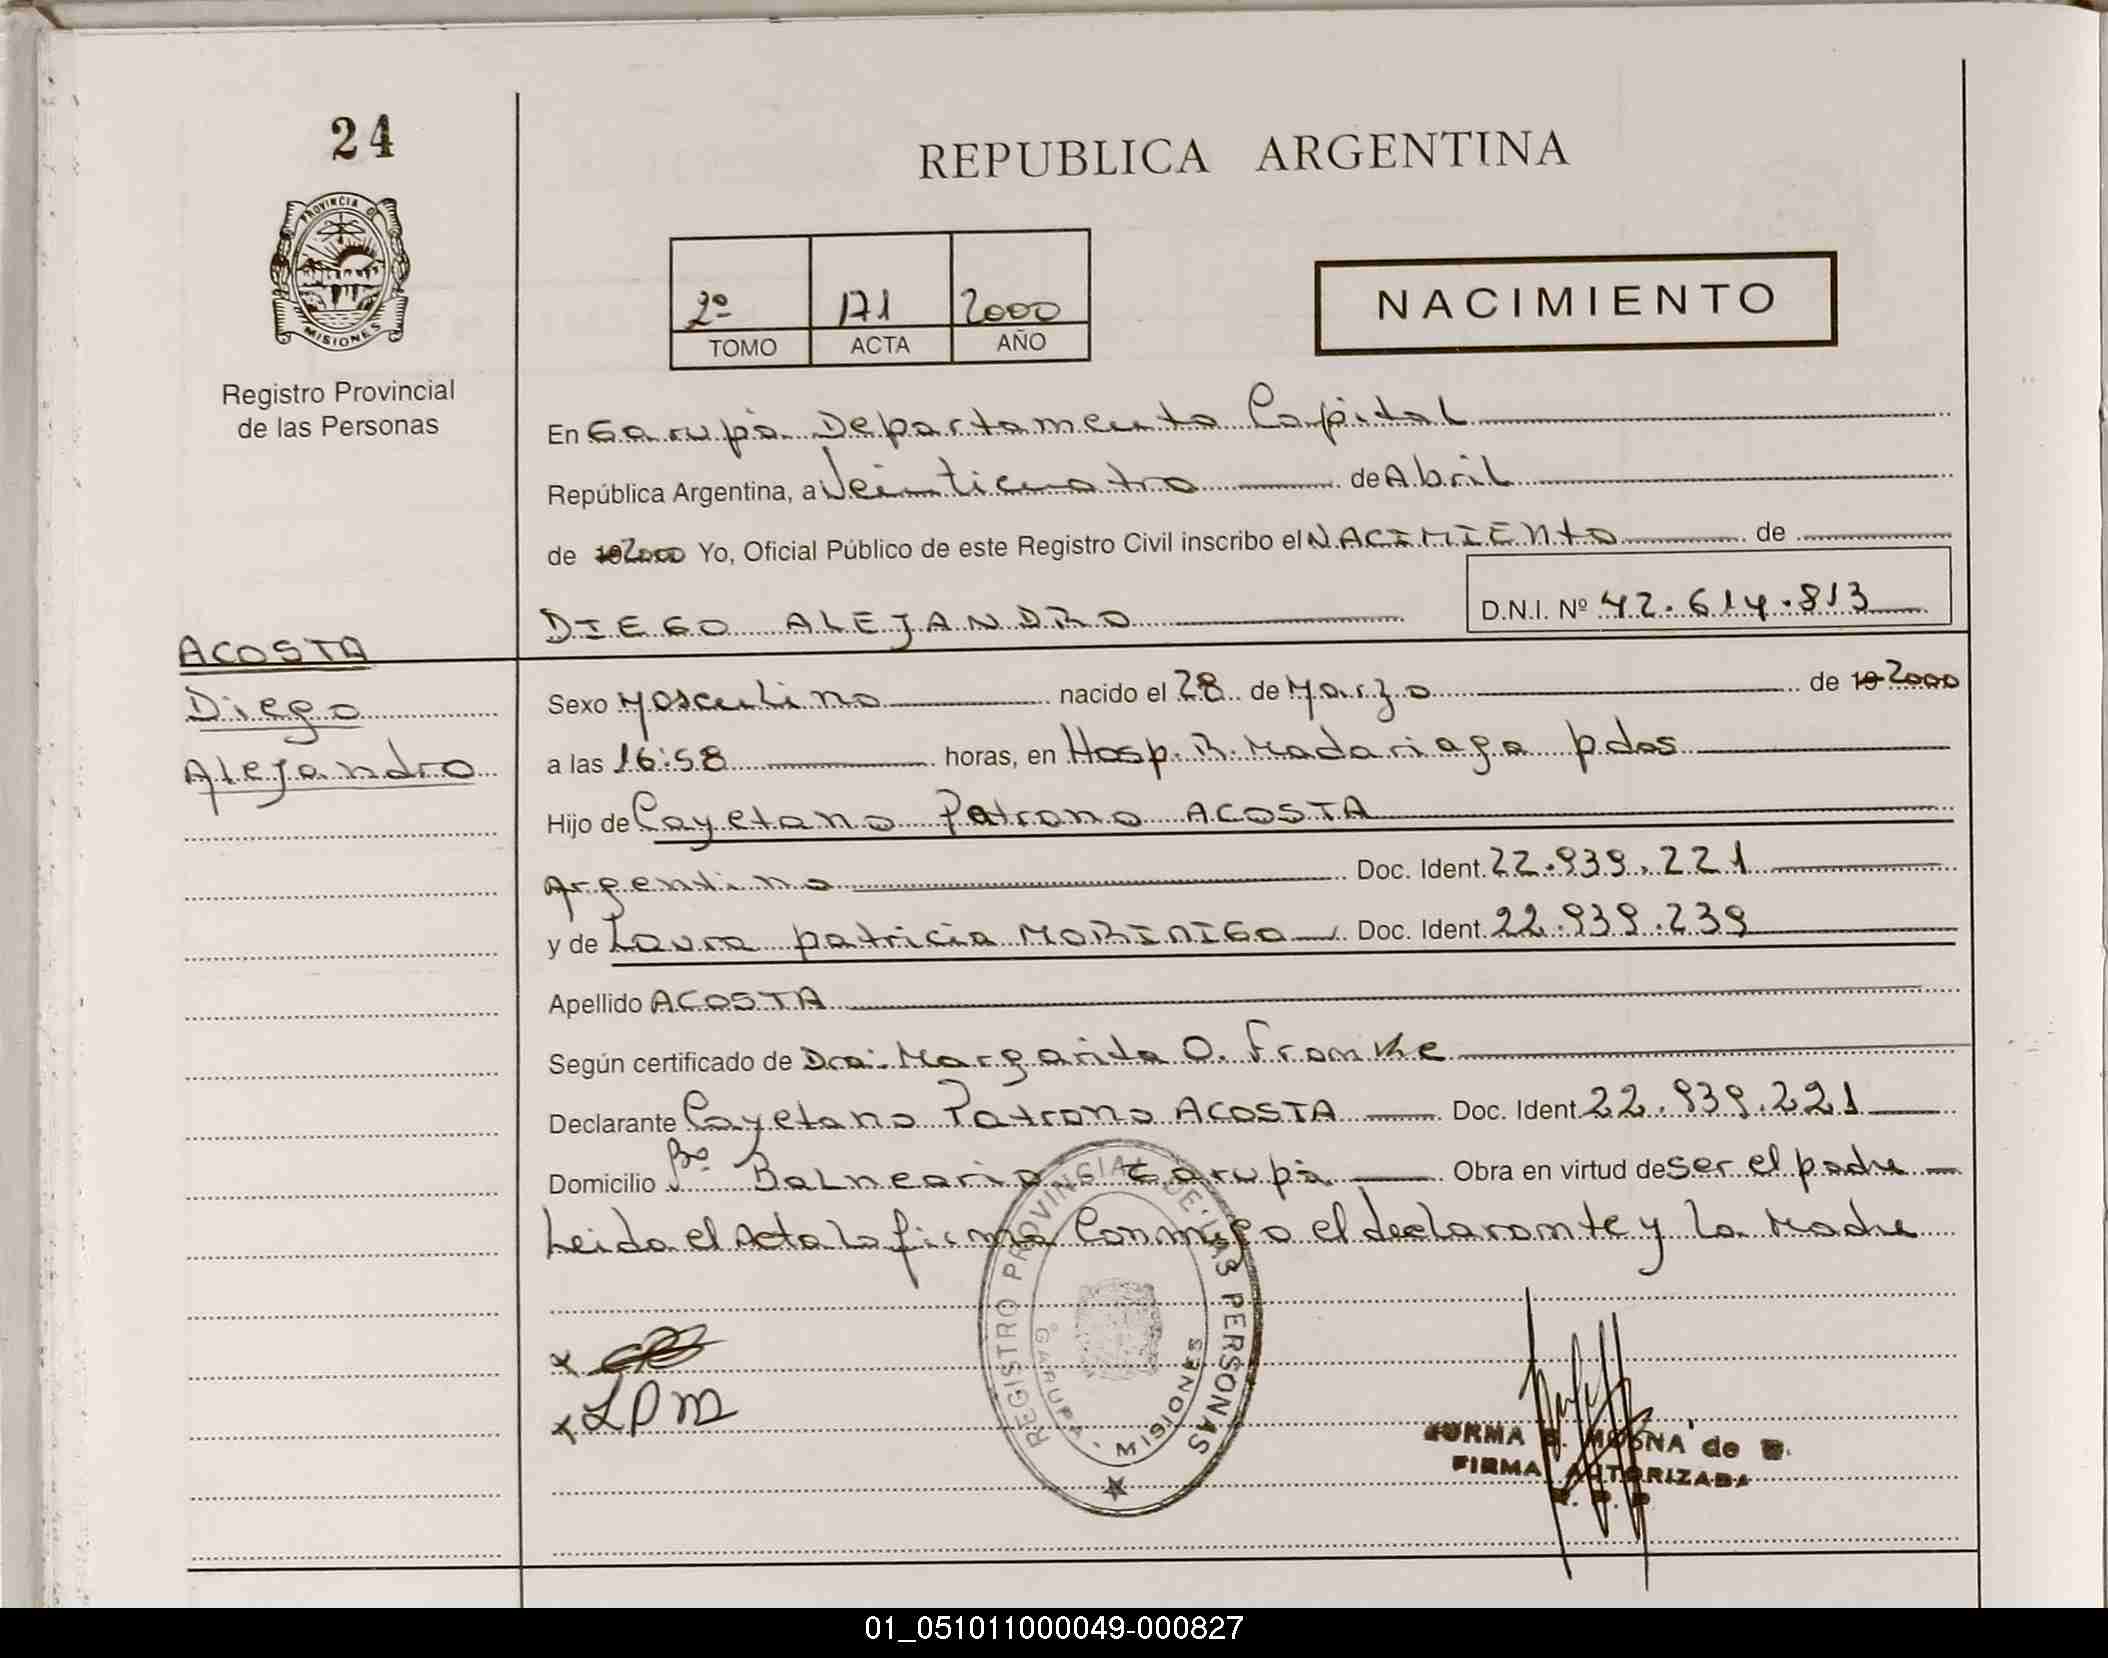 24
PROVINCIA DE
MISIONES
Registro Provincial
de las Personas
REPUBLICA ARGENTINA
2º 171 2000
TOMO ACTA AÑO
NACIMIENTO
En Garupá Departamento Capital
República Argentina, a Veinticuatro de Abril
de 19 2000 Yo, Oficial Público de este Registro Civil inscribo el NACIMIENTO de
DIEGO ALEJANDRO D.N.I. Nº 42.614.813
ACOSTA
Diego
Alejandro
Sexo Masculino nacido el 28 de Marzo de 19 2000
a las 16:58 horas, en Hosp. R. Madariaga pdas
Hijo de Cayetano Patrono ACOSTA
Argentino Doc. Ident. 22.939.221
y de Laura patricia MORINIGO Doc. Ident. 22.939.239
Apellido ACOSTA
Según certificado de Dra. Margarita O. Fromke
Declarante Cayetano Patrono ACOSTA Doc. Ident. 22.939.221
Domicilio Bº Balneario Garupá Obra en virtud de ser el padre
Leida el Acta la firma Conmigo el declarante y la Madre
LPM
REGISTRO PROVINCIAL DE LAS PERSONAS
GARUPA - MISIONES
MOSNA de
FIRMA AUTORIZADA
01_051011000049-000827